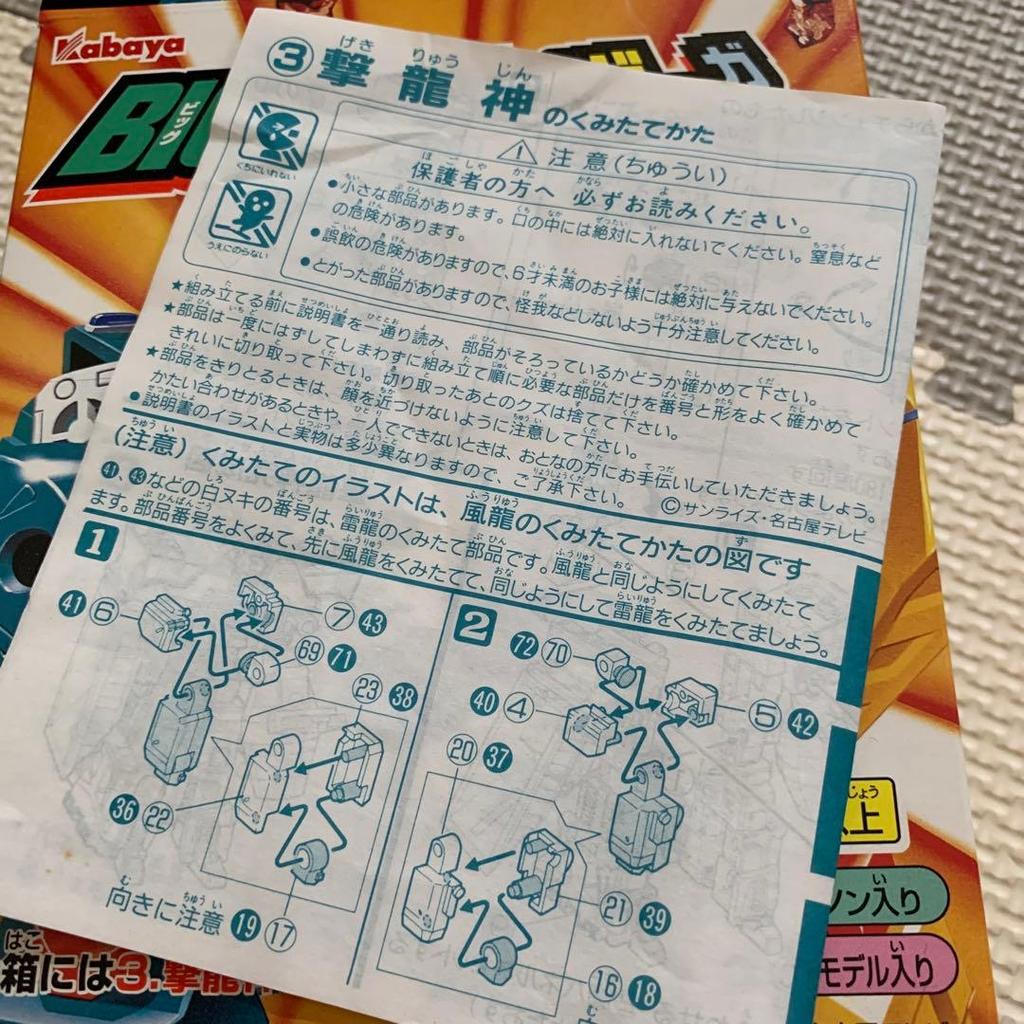 Kabaya
BIG
ビッグ
ガ
③撃龍神のくみたてかた
げき りゅう じん
くちにいれない
うえにのらない
⚠注意(ちゅうい)
保護者の方へ 必ずお読みください。
●小さな部品があります。口の中には絶対に入れないでください。窒息など
の危険があります。
●誤飲の危険がありますので、6才未満のお子様には絶対に与えないでください。
●とがった部品がありますので、怪我などしないよう十分注意してください。
★組み立てる前に説明書を一通り読み、部品がそろっているかどうか確かめて下さい。
★部品は一度にはずしてしまわずに組み立て順に必要な部品だけを番号と形をよく確かめて
きれいに切り取って下さい。切り取ったあとのクズは捨てて下さい。
★部品をきりとるときは、顔を近づけないように注意して下さい。
かたい合わせがあるときや、一人でできないときは、おとなの方にお手伝いしていただきましょう。
●説明書のイラストと実物は多少異なりますので、ご了承下さい。
©サンライズ・名古屋テレビ
(注意)くみたてのイラストは、風龍のくみたてかたの図です
㊶、㊸などの白ヌキの番号は、雷龍のくみたて部品です。風龍と同じようにしてくみたて
ます。部品番号をよくみて、先に風龍をくみたてて、同じようにして雷龍をくみたてましょう。
1
41 6
7 43
69 71
23 38
36 22
向きに注意 19 17
2
72 70
40 4
5 42
20 37
21 39
16 18
じょう
上
ソン入り
モデル入り
はこ
箱には3.撃龍神